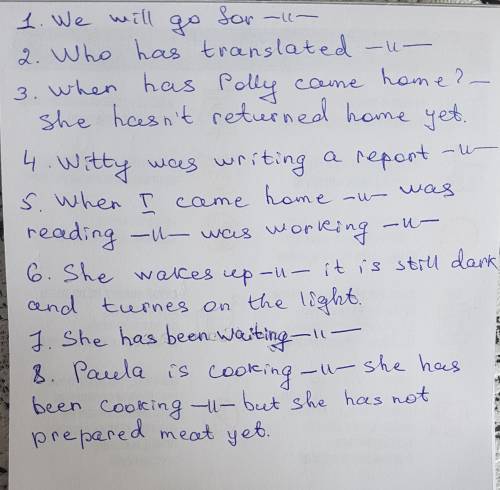 1. We will go for -ıı-
2. Who has translated -ıı-
3. When has Polly came home? -
she hasn't returned home yet.
4. Witty was writing a report -ıı-
5. When I came home -ıı- was
reading -ıı- was working -ıı-
6. She wakes up -ıı- it is still dark
and turnes on the light.
7. She has been waiting -ıı-
8. Paula is cooking -ıı- she has
been cooking -ıı- but she has not
prepared meat yet.